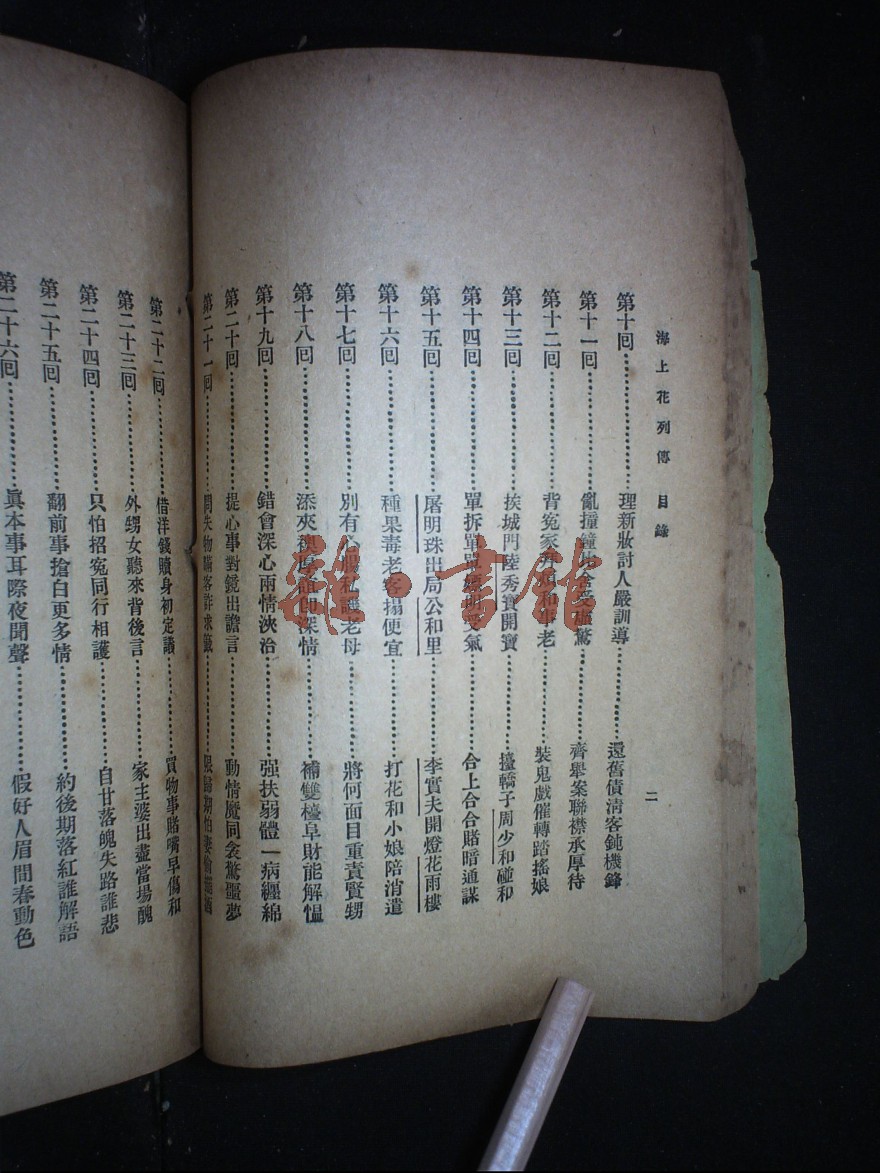 海上花列傳 目錄
二
第十回……理新妝討人嚴訓導……還舊債清客鈍機鋒
第十一回……亂撞鐘受虛驚……齊舉案聯襟承厚待
第十二回……背冤家和事老……裝鬼戲催轉踏搖娘
第十三回……挨城門陸秀寶開寶……擡轎子周少和碰和
第十四回……單拆單受氣……合上合合賭暗通謀
第十五回……屠明珠出局公和里……李實夫開燈花雨樓
第十六回……種果毒老客搨便宜……打花和小娘陪消遣
第十七回……別有心腸私譏老母……將何面目重責賢甥
第十八回……添夾襖厚深情……補雙檯阜財能解慍
第十九回……錯會深心兩情浹洽……强扶弱體一病纏綿
第二十回……提心事對鏡出譫言……動情魔同衾驚噩夢
第二十一回……問失物瞞客詐求籤……限歸期怕妻偷擺酒
第二十二回……借洋錢贖身初定議……買物事賭嘴早傷和
第二十三回……外甥女聽來背後言……家主婆出盡當場醜
第二十四回……只怕招冤同行相護……自甘落魄失路誰悲
第二十五回……翻前事搶白更多情……約後期落紅誰解語
第二十六回……眞本事耳際夜聞聲……假好人眉間春動色
雜·書館